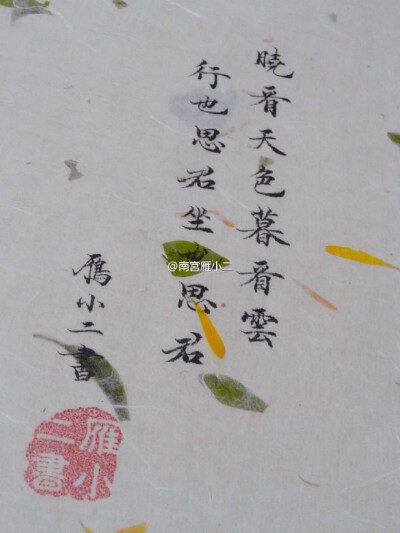 曉看天色暮看雲
行也思君坐也思君
雁小二書
@南宫雁小二
雁小二書